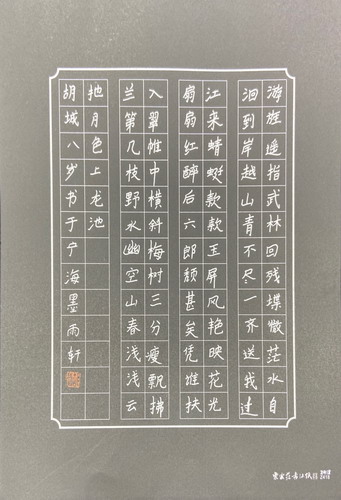 游旌遥指武林回残堞微茫水自
洄到岸越山青不尽一齐送我过
江来蜻蜓款款玉屏风艳映花光
扇扇红醉后六郎颓甚矣凭谁扶
入翠帷中横斜梅树三分瘦飘拂
兰第几枝野水幽空山春浅浅云
拖月色上龙池
胡城八岁书于宁海墨雨轩